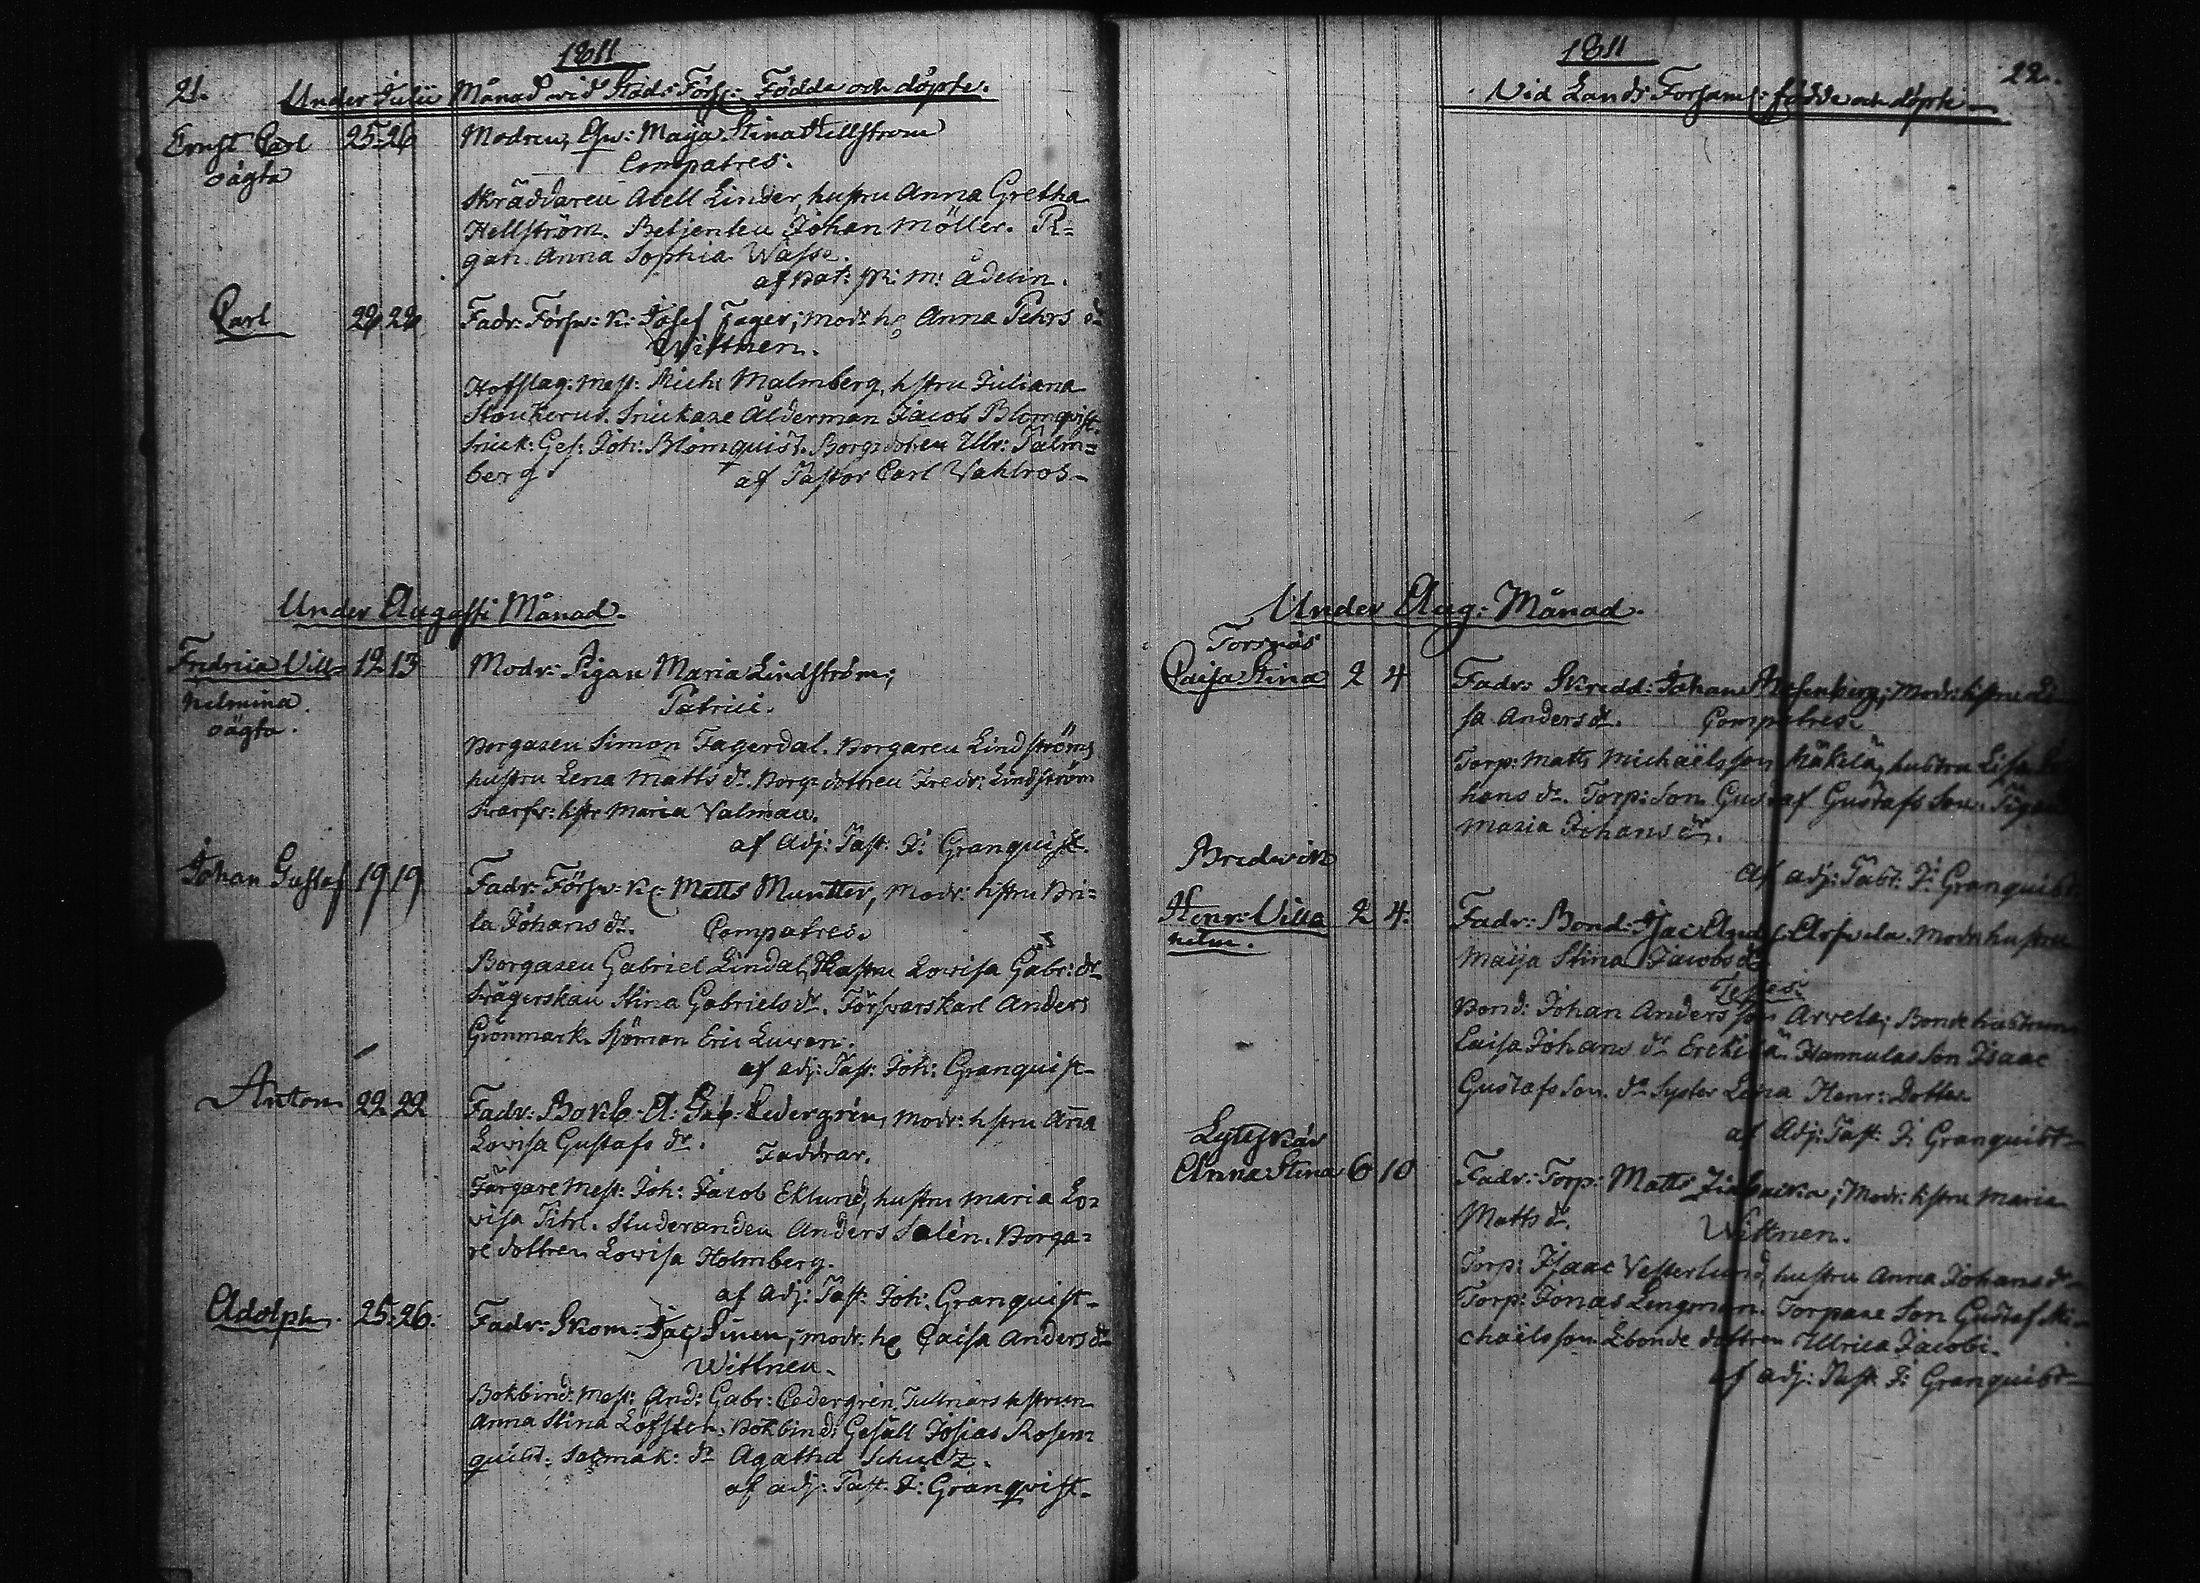 1811
21.
Under Julii Månad vid Stads Förs: Födde och döpte.
Ernst Carl 25 26 Modren, Maija Stina Hellstrom
oägta Compatres.
Skräddaren Linder, hustru Anna Gretha
Hellström. Betjenten Johan Möller. Pi=
gan Anna Sophia Wasse.
af Ådelin.
Carl Fadr: Försv: K: Josef Fager; modr: h: Anna Pehrs dr
Wittnen.
Hofslag: mest: Mich: Malmberg, hstru Juliana
Snickare Ålderman Jacob Blomqvist.
Snick: Ges: Joh: Blomquist. Borg: dotren Ulr: Palm=
berg.
af Pastor Carl Vahlros
Under Augusti Månad.
Fredrica Vill= 12 13 Modr: Pigan Maria Lindström;
helmina. Patrici.
oägta.
Borgaren Simon Fagerdal. Borgaren Lindströms
hustru Lena Matts dr. Borg: dottren Fredr: Lindström
Svarfv: hstr Maria Valman.
af Adj: Past: J: Granquist.
Johan Gustaf 19 19 Fadr: Försv: K: Matts Muntter, Modr: hstru Bri=
ta Johans dr. Compatres.
Borgaren Gabriel Lindal, Hustru Lovisa Gabr: dr
Stina Gabriels dr. Försvarskarl Anders
Grönmark. Sjöman Eric Luren.
af adj: Past: Joh: Granquist
Anton 22 22 Fadr: Bokb: A: Gab: Cedergren, modr: hstru Anna
Lovisa Gustafs dr. Faddrar.
Färgare Mest: Joh: Jacob Eklund, hustru Maria Lo=
visa Studeranden Anders Salén. Borga=
re dottren Lovisa Holmberg.
af Adj: Past: Joh: Granquist
Adolph. 25. 26. Fadr: Skom: Jac: Sinen, modr: h: Caisa Anders dr
Wittnen.
Bokbind: Mest: And: Gabr: Cedergrén. Tullnärs hstrun
Anna Stina Löfsten. Bokbind: Gesäll Josias Rosen=
quist. Agatha Schultz.
af adj: Past: J: Granqvist
1811
22.
Vid Lands Församl: födde och döpte
Under Aug: Månad.
Torsnäs
Caisa Stina 2 4 Fadr: Skredd: Johan Rosenberg; Modr: hstru Li
sa Anders dr. Compatres.
Torp: Matts Michaëlsson Mäkelä, hustru Lisa Jo
hans dr. Torp: Son Gustaf Gustafs Son. Pigan
Maria Johans dr.
af adj: Past: J: Granquist
Bredwik
Henr: Villa 2 4. Fadr: Bond: Jac: And: Arfvela. Modr: hustru
helm. Maija Stina Jacobs dr
Testes.
Bond: Johan Andersson Arvela; Bonde hustrun
Caisa Johans dr Erckilä. Hannulas Son Isaac
Gustafs Son. Syster Lena Henr: Dotter
af Adj: Past: J: Granquist
Lyttskär
Anna Stina 6 10 Fadr: Torp: Matts Modr: hstru Maria
Matts dr. Wittnen.
Torp: Isaac Vesterlund, hustru Anna Johans dr
Torp: Jonas Lengman. Torpare Son Gustaf Mi=
chaëlsson. Ebonde dottren Ulrica Jacobi.
af adj: Past: J: Granquist